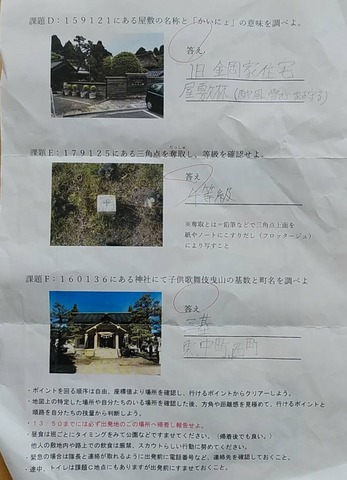 課題D：159121にある屋敷の名称と「かいにょ」の意味を調べよ。
答え.
旧 金岡家住宅
屋敷林
課題E：179125にある三角点を奪取し、等級を確認せよ。
だっしゅ
答え
等級
※奪取とは＝鉛筆などで三角点上面を
紙やノートにこすりだし（フロッタージュ）
により写すこと
課題F：160136にある神社にて子供歌舞伎曳山の基数と町名を調べよ
答え
三基
・ポイントを回る順序は自由、座標値より場所を確認し、行けるポイントからクリアーしよう。
・地図上の特定した場所や自分たちのいる場所を確認した後、方角や距離感を見極めて、行けるポイントと
順路を自分たちの技量から判断しよう。
・13：50までには必ず出発地のこの場所へ帰着し報告せよ。
・昼食は班ごとにタイミングをみて公園などですませてください。（帰着後でも良い。）
他人の敷地内や路上での飲食は厳禁、スカウトらしい行動に努めてください。
・緊急の場合は隊長と連絡が取れるように出発前に電話番号など、連絡先を確認しておくこと。
・途中、トイレは課題C地点にもありますが出発前にすませておくこと。